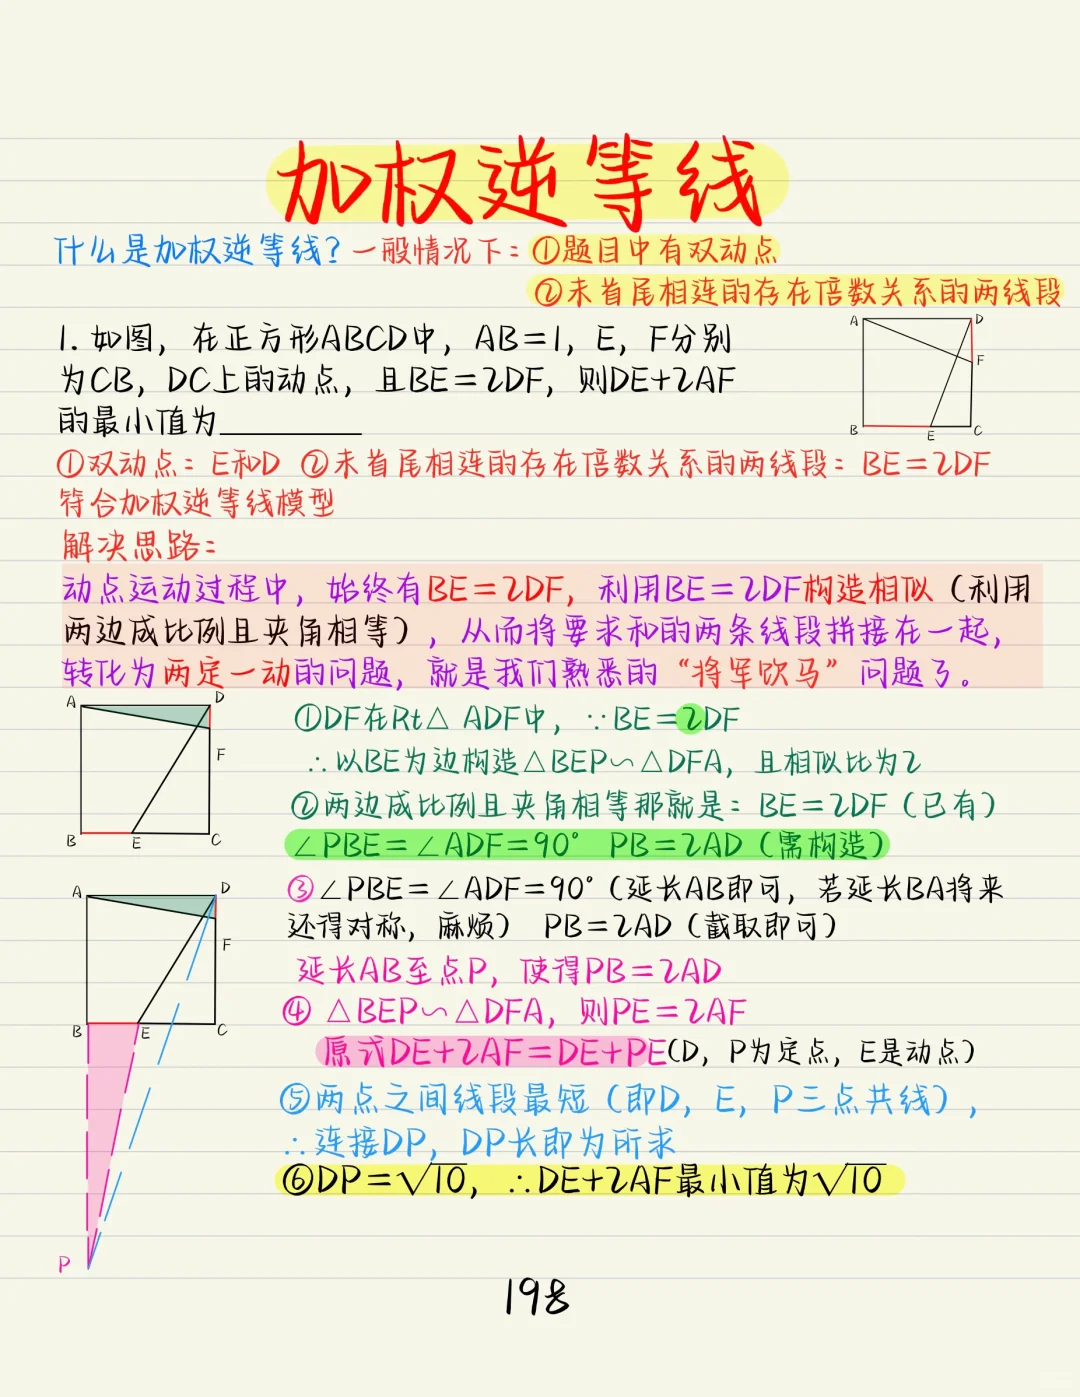 加权逆等线
什么是加权逆等线?一般情况下:①题目中有双动点
②未首尾相连的存在倍数关系的两线段
1. 如图，在正方形ABCD中，AB=1，E，F分别
为CB，DC上的动点，且BE=2DF，则DE+2AF
的最小值为________
A D
F
B E C
①双动点：E和D ②未首尾相连的存在倍数关系的两线段：BE=2DF
符合加权逆等线模型
解决思路：
动点运动过程中，始终有BE=2DF，利用BE=2DF构造相似（利用
两边成比例且夹角相等），从而将要求和的两条线段拼接在一起，
转化为两定一动的问题，就是我们熟悉的“将军饮马”问题了。
A D
F
B E C
①DF在Rt△ ADF中，∵BE=2DF
∴以BE为边构造△BEP∽△DFA，且相似比为2
②两边成比例且夹角相等那就是：BE=2DF（已有）
∠PBE=∠ADF=90° PB=2AD（需构造）
A D
F
B E C
P
③∠PBE=∠ADF=90°（延长AB即可，若延长BA将来
还得对称，麻烦） PB=2AD（截取即可）
延长AB至点P，使得PB=2AD
④ △BEP∽△DFA，则PE=2AF
原式DE+2AF=DE+PE(D，P为定点，E是动点）
⑤两点之间线段最短（即D，E，P三点共线），
∴连接DP，DP长即为所求
⑥DP=√10，∴DE+2AF最小值为√10
198